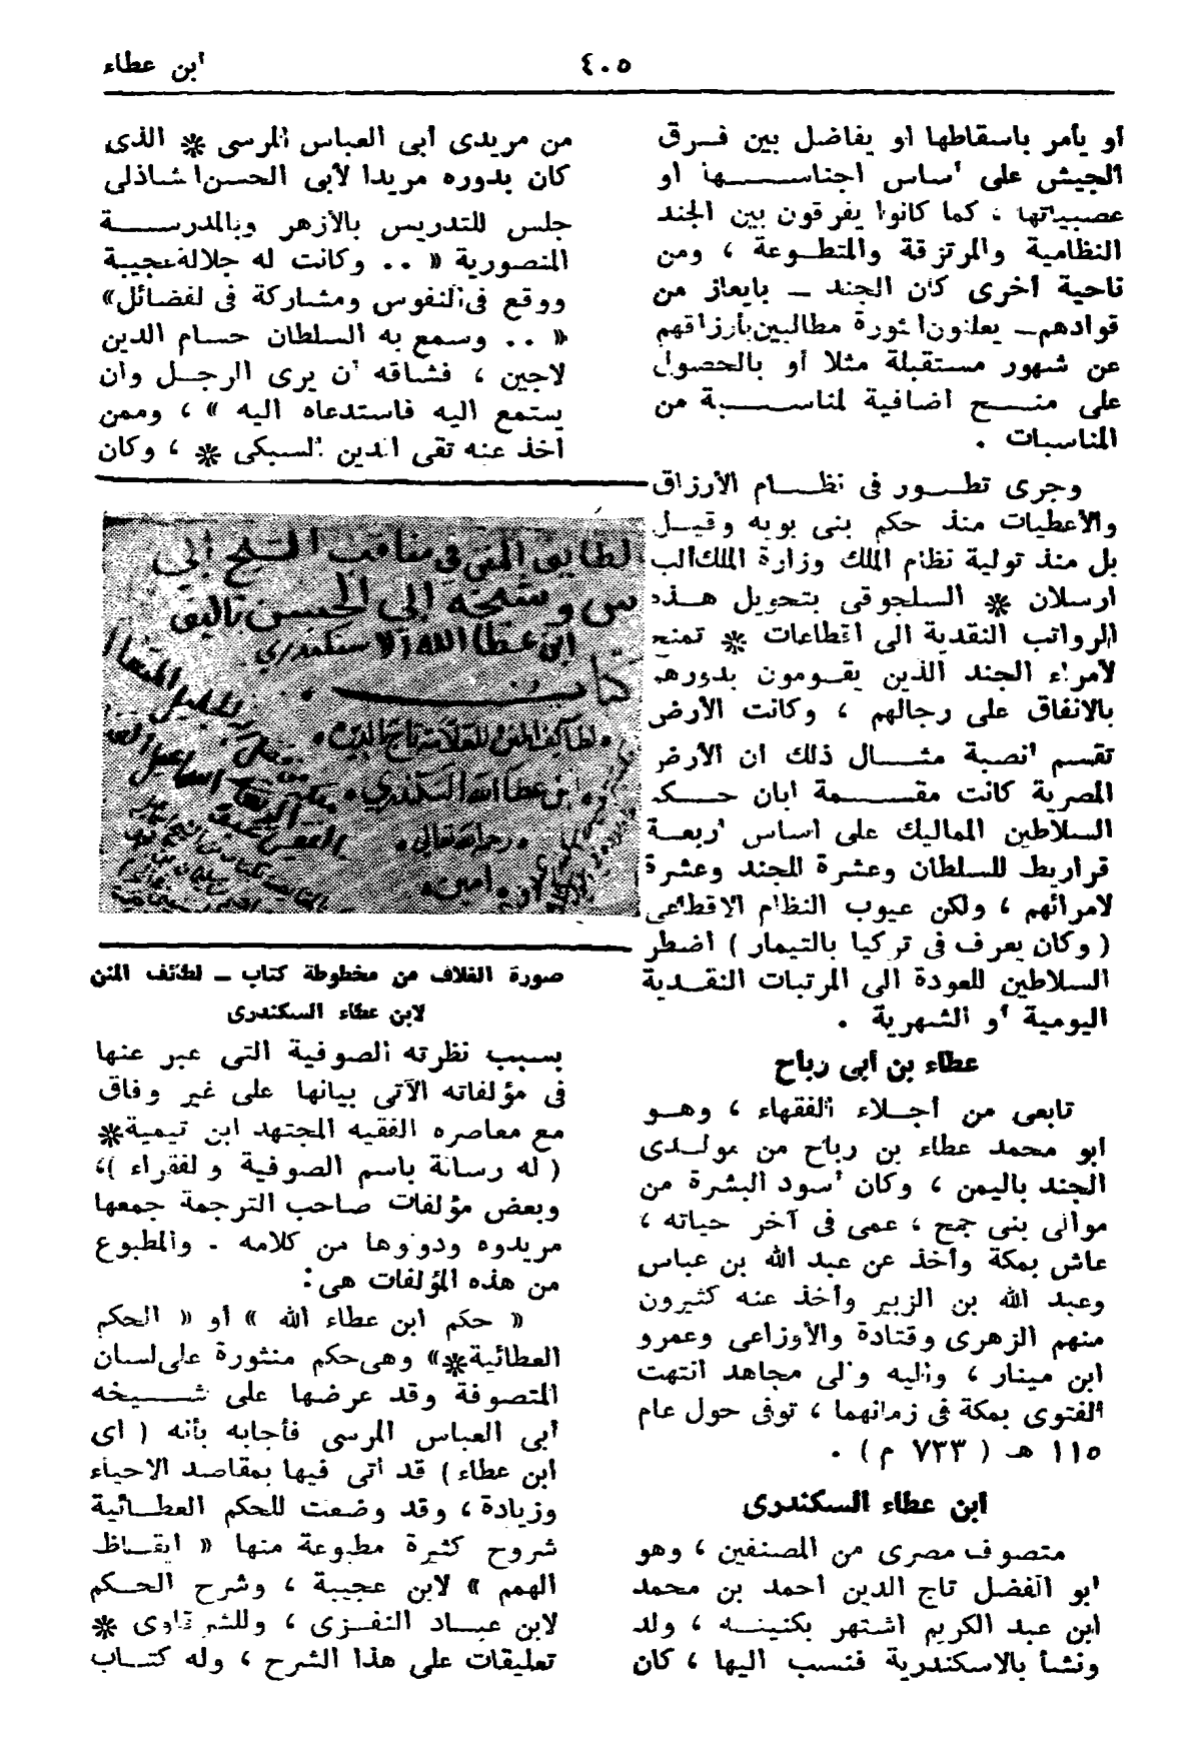 ابن عطاء
٤٠٥
أو يأمر باسقاطها أو يفاضل بين فرق
الجيش على أساس أجناسها أو
عصبياتها ، كما كانوا يفرقون بين الجند
النظامية والمرتزقة والمتطوعة ، ومن
ناحية أخرى كان الجند ــ بايعاز من
قوادهم ــ يعلنون الثورة مطالبين بأرزاقهم
عن شهور مستقبلة مثلا أو بالحصول
على منح اضافية لمناسبة من
المناسبات .
وجرى تطور فى نظام الأرزاق
والأعطيات منذ حكم بنى بويه وقيل
بل منذ تولية نظام الملك وزارة الملك الب
ارسلان * السلجوقى بتحويل هذه
الرواتب النقدية الى اقطاعات * تمنح
لأمراء الجند الذين يقومون بدورهم
بالانفاق على رجالهم ، وكانت الأرض
تقسم أنصبة مثال ذلك ان الأرض
المصرية كانت مقسمة ابان حكم
السلاطين المماليك على أساس أربعة
قراريط للسلطان وعشرة للجند وعشرة
لامرائهم ، ولكن عيوب النظام الاقطاعى
( وكان يعرف فى تركيا بالتيمار ) اضطر
السلاطين للعودة الى المرتبات النقدية
اليومية أو الشهرية .
عطاء بن أبى رباح
تابعى من أجلاء الفقهاء ، وهو
ابو محمد عطاء بن رباح من مولدى
الجند باليمن ، وكان أسود البشرة من
موالى بنى جمح ، عمى فى آخر حياته ،
عاش بمكة وأخذ عن عبد الله بن عباس
وعبد الله بن الزبير وأخذ عنه كثيرون
منهم الزهرى وقتادة والأوزاعى وعمرو
ابن مينار ، واليه والى مجاهد انتهت
الفتوى بمكة فى زمانهما ، توفى حول عام
١١٥ هـ ( ٧٣٣ م ) .
ابن عطاء السكندرى
متصوف مصرى من المصنفين ، وهو
أبو الفضل تاج الدين أحمد بن محمد
ابن عبد الكريم اشتهر بكنيته ، ولد
ونشأ بالاسكندرية فنسب اليها ، كان
من مريدى أبى العباس المرسى * الذى
كان بدوره مريدا لأبى الحسن الشاذلى
جلس للتدريس بالأزهر وبالمدرسة
المنصورية « .. وكانت له جلالة عجيبة
ووقع فى النفوس ومشاركة فى الفضائل»
« .. وسمع به السلطان حسام الدين
لاجين ، فشاقه أن يرى الرجل وأن
يستمع اليه فاستدعاه اليه » ، وممن
أخذ عنه تقى الدين السبكى * ، وكان
لطايف المنن فى مناقب الشيخ ابى
س وشيخه ابى الحسن تاليف
ابن عطا الله الاسكندري
كتاب
لطائف المنن للعلامة تاج الدين
ابن عطا الله السكندري
رحمه الله تعالى
امين
صورة الغلاف من مخطوطة كتاب ــ لطائف المنن
لابن عطاء السكندرى
بسبب نظرته الصوفية التى عبر عنها
فى مؤلفاته الآتى بيانها على غير وفاق
مع معاصره الفقيه المجتهد ابن تيمية*
( له رسالة باسم الصوفية والفقراء )،
وبعض مؤلفات صاحب الترجمة جمعها
مريدوه ودونوها من كلامه . والمطبوع
من هذه المؤلفات هى :
« حكم ابن عطاء الله » أو « الحكم
العطائية*» وهى حكم منثورة على لسان
المتصوفة وقد عرضها على شيخه
أبى العباس المرسى فأجابه بأنه ( أى
ابن عطاء ) قد أتى فيها بمقاصد الاحياء
وزيادة ، وقد وضعت للحكم العطائية
شروح كثيرة مطبوعة منها « ايقاظ
الهمم » لابن عجيبة ، وشرح الحكم
لابن عباد النفزى ، وللشرقاوى *
تعليقات على هذا الشرح ، وله كتاب